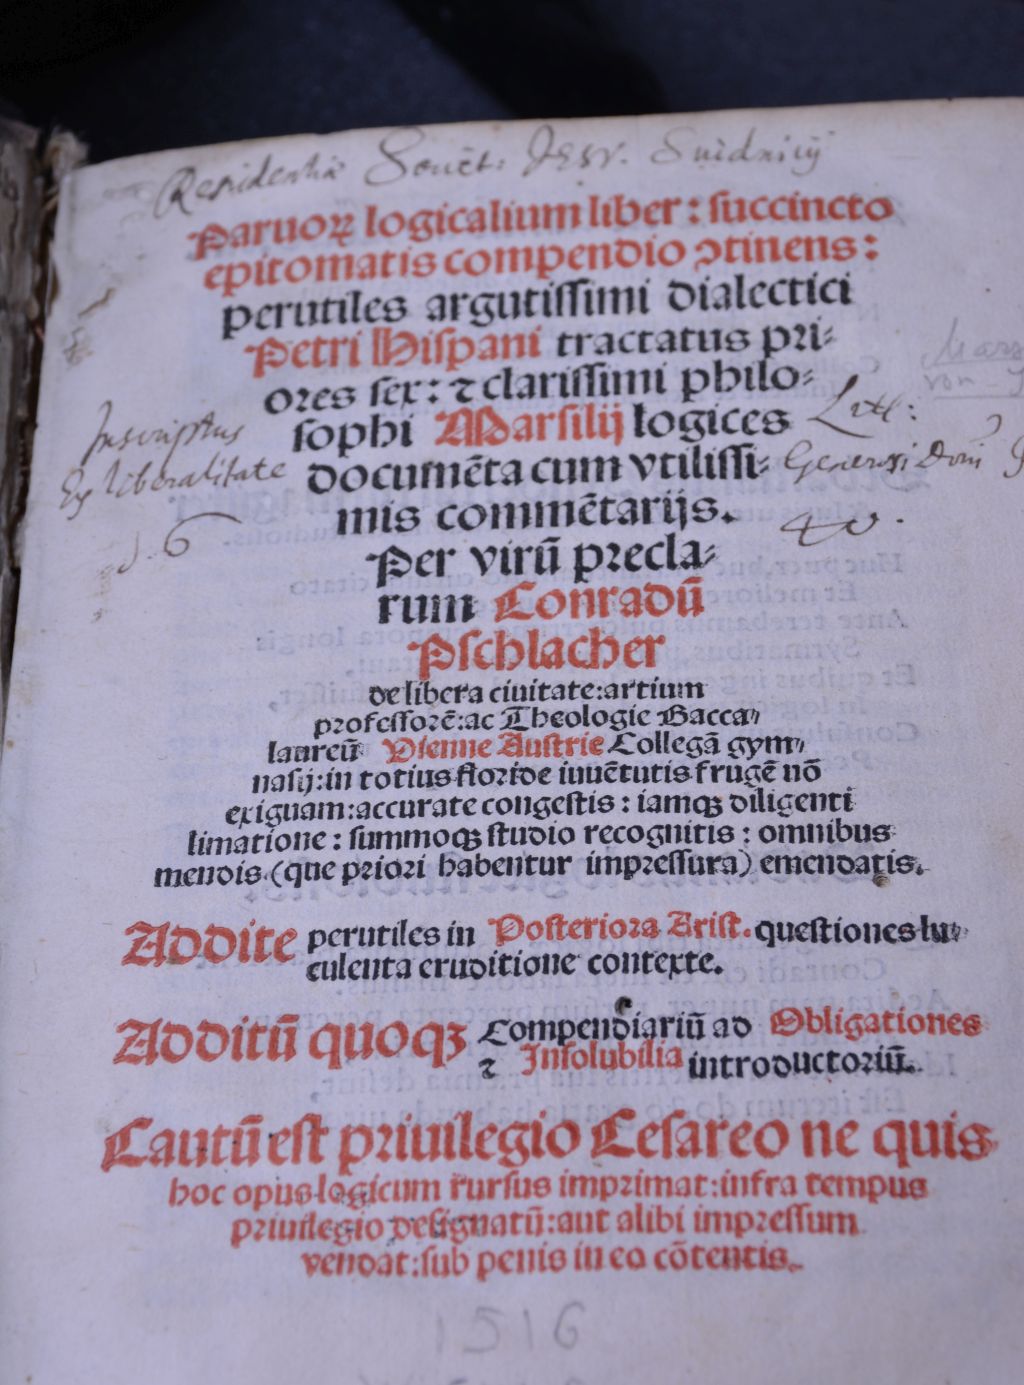 Residentiæ Societ: Jesv. Suidnicij
Paruoꝝ logicalium liber: succincto
epitomatis compendio ↄtinens:
perutiles argutissimi dialectici
Petri Hispani tractatus pri⸗
ores sex: ⁊ clarissimi philo⸗
sophi Marsilij logices
documēta cum vtilissi⸗
mis commētarijs.
Inscriptus
Ex liberalitate
Generosi Domī
Per virū precla⸗
rum Conradū
Pschlacher
de libera ciuitate: artium
professorē: ac Theologie Bacca⸗
laureū Vienne Austrie Collegā gym⸗
nasij: in totius floride iuuētutis frugē nō
exiguam: accurate congestis: iamqꝫ diligenti
limatione: summoqꝫ studio recognitis: omnibus
mendis (que priori habentur impressura) emendatis.
Addite perutiles in Posteriora Arist. questiones lu⸗
culenta eruditione contexte.
Additū quoqꝫ Compendiariū ad Obligationes
⁊ Insolubilia introductoriū.
Cautū est priuilegio Cesareo ne quis
hoc opus logicum rursus imprimat: infra tempus
priuilegio designatū: aut alibi impressum
vendat: sub penis in eo cōtentis.
1516